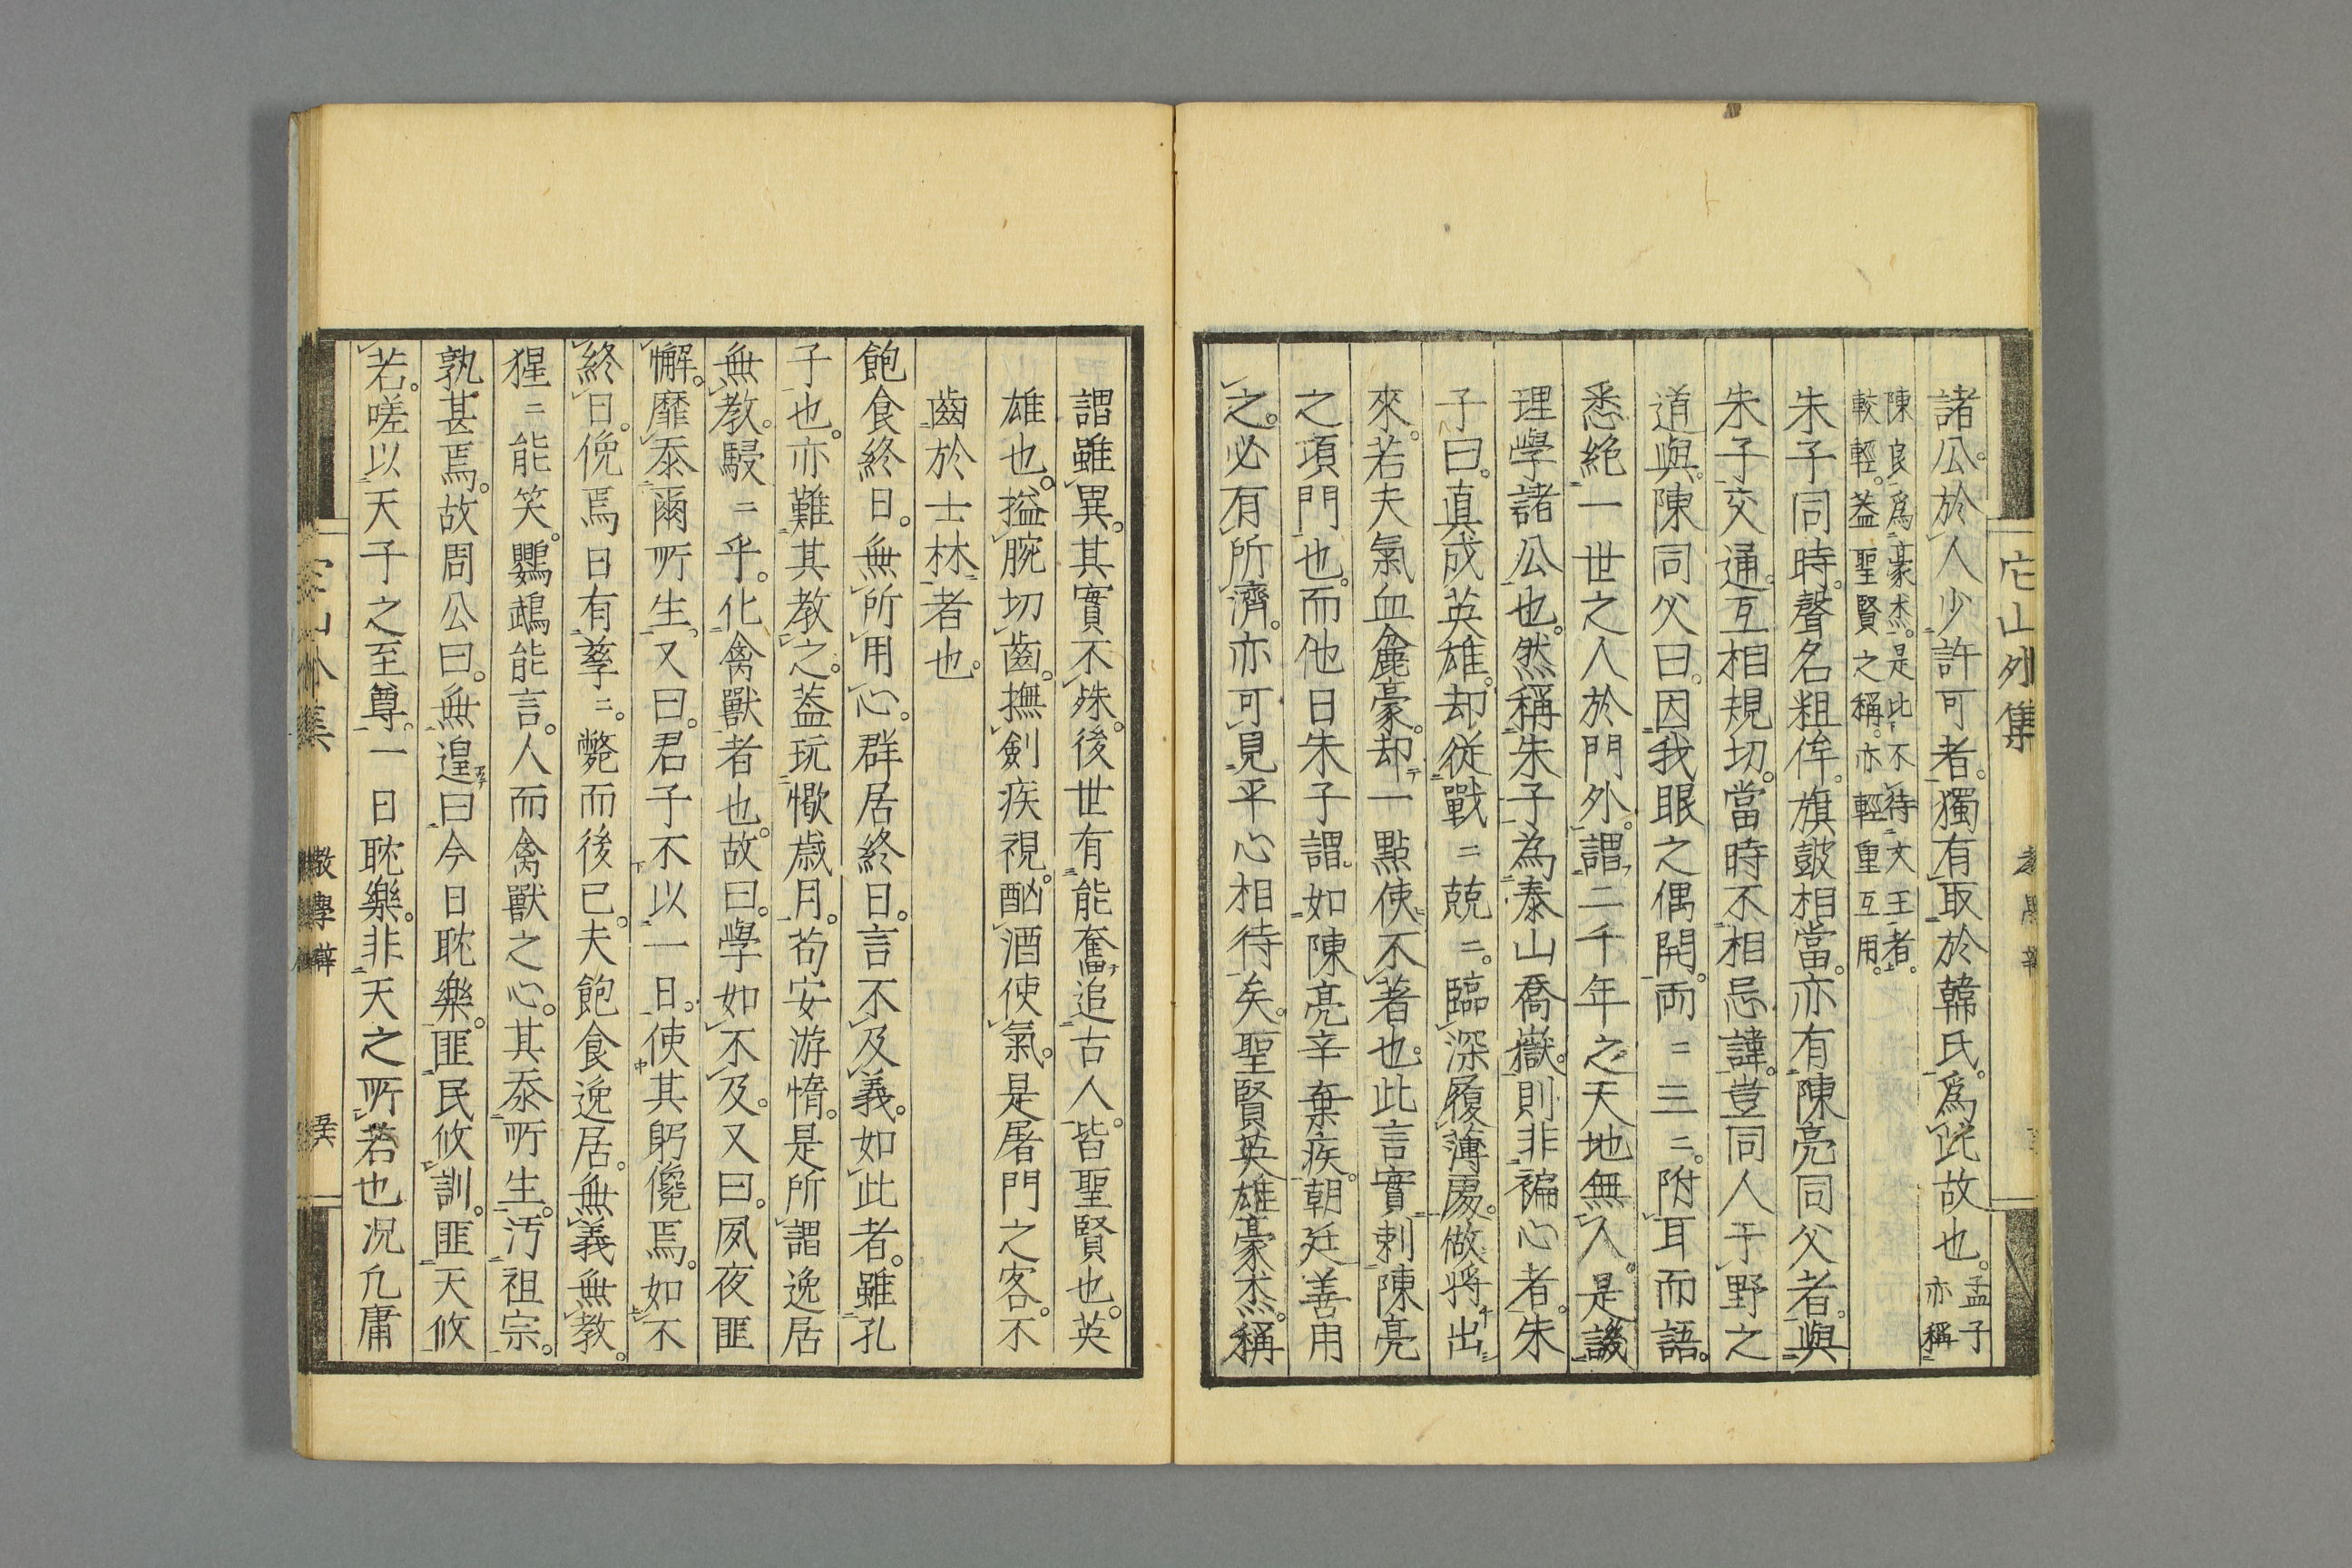 它山外集
諸公。於人少許可者。獨有取於韓氏。爲此故也。孟子亦稱
陳良爲豪杰。是此不待文王者。
較輕。葢聖賢之稱。亦輕重互用。
朱子同時。聲名粗侔。旗鼓相當。亦有陳亮同父者。與
朱子交通。互相規切。當時不相忌諱。豈同人于野之
道與。陳同父曰。因我眼之偶開。兩二三二。附耳而語。
悉絶一世之人於門外。謂二千年之天地無人。是譏
理學諸公也。然稱朱子為泰山喬嶽。則非褊心者。朱
子曰。真成英雄。却從戰二兢二。臨深履薄處。做將出
來。若夫氣血麁豪。却一點使不著也。此言實刺陳亮
之項門也。而他日朱子謂。如陳亮辛棄疾。朝廷善用
之。必有所濟。亦可見平心相待矣。聖賢英雄豪杰。稱
謂雖異。其實不殊。後世有能奮追古人。皆聖賢也。英
雄也。搤腕切齒。撫劍疾視。酗酒使氣。是屠門之客。不
齒於士林者也。
飽食終日。無所用心。群居終日。言不及義。如此者。雖孔
子也。亦難其教之。葢玩愒歳月。苟安游惰。是所謂逸居
無教。駸二乎。化禽獸者也。故曰。學如不及。又曰。夙夜匪
懈。靡忝爾所生。又曰。君子不以一日。使其躬儳焉。如不
終日。俛焉日有孳二。斃而後已。夫飽食逸居。無義無教。
猩二能笑。鸚鵡能言。人而禽獸之心。其忝所生。汚祖宗。
孰甚焉。故周公曰。無遑曰今日耽樂。匪民攸訓。匪天攸
若。嗟以天子之至尊。一日耽樂。非天之所若也况凢庸
教學辯